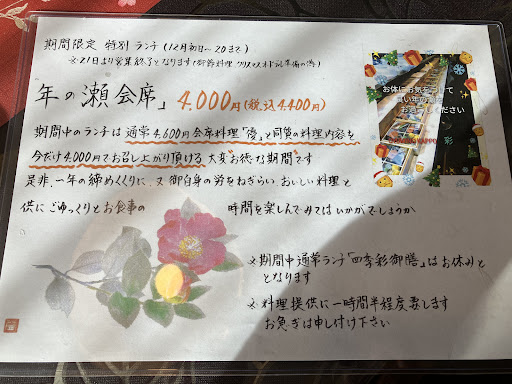 期間限定 特別ランチ(12月初旬〜20まで)
※21日より営業終了となります(御節料理 クリスマスオードブル準備の為)
年の瀬会席」 4.000円(税込4.400円)
期間中のランチは通常4,600円会席料理「偲」と同質の料理内容を
今だけ4.000円でお召し上がり頂ける 大変お徳な期間です
是非、一年の締めくくりに、又 御自身の労をねぎらい、おいしい料理と
供にごゆっくりとお食事の 時間を楽しんでみてはいかがでしょうか
※期間中通常ランチ「四季彩御膳」はお休みと
となります
※料理提供に一時間半程度要します
お急ぎは申し付け下さい
お体にお気をつけて
良い年の瀬を
お過ごしください
彩